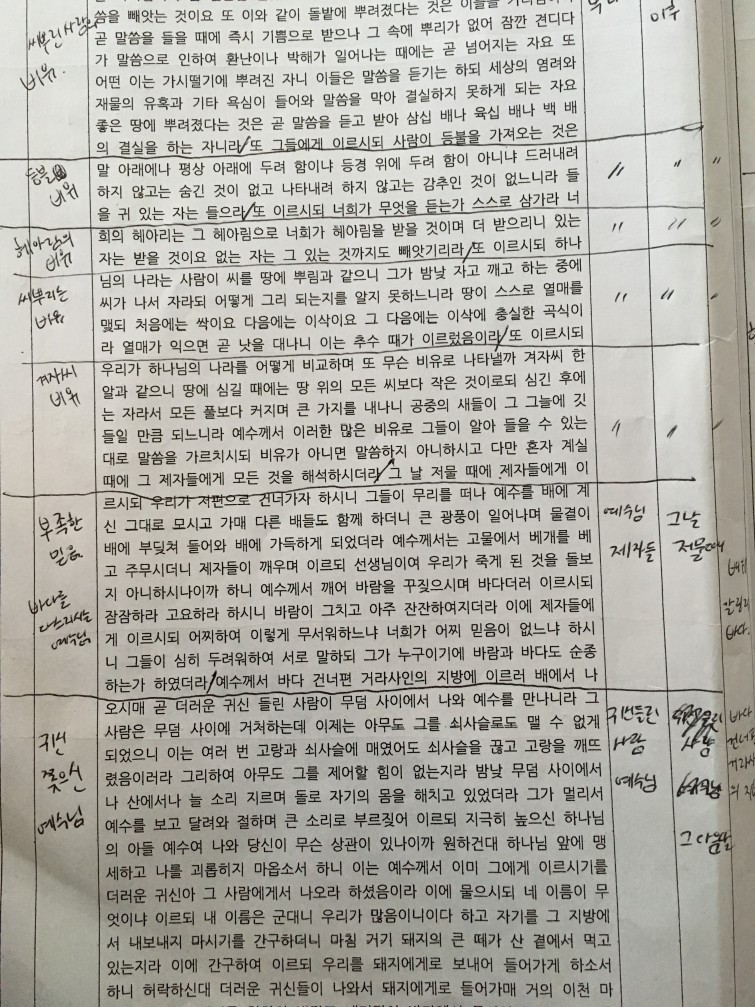 씨뿌린 사람의
비유.
씀을 빼앗는 것이요 또 이와 같이 돌밭에 뿌려졌다는 것은 이들을
곧 말씀을 들을 때에 즉시 기쁨으로 받으나 그 속에 뿌리가 없어 잠깐 견디다
가 말씀으로 인하여 환난이나 박해가 일어나는 때에는 곧 넘어지는 자요 또
어떤 이는 가시떨기에 뿌려진 자니 이들은 말씀을 듣기는 하되 세상의 염려와
재물의 유혹과 기타 욕심이 들어와 말씀을 막아 결실하지 못하게 되는 자요
좋은 땅에 뿌려졌다는 것은 곧 말씀을 듣고 받아 삼십 배나 육십 배나 백 배
의 결실을 하는 자니라 또 그들에게 이르시되 사람이 등불을 가져오는 것은
이후
등불
비유
말 아래에나 평상 아래에 두려 함이냐 등경 위에 두려 함이 아니냐 드러내려
하지 않고는 숨긴 것이 없고 나타내려 하지 않고는 감추인 것이 없느니라 들
을 귀 있는 자는 들으라 또 이르시되 너희가 무엇을 듣는가 스스로 삼가라 너
〃 〃 〃
헤아림의
비유
희의 헤아리는 그 헤아림으로 너희가 헤아림을 받을 것이며 더 받으리니 있는
자는 받을 것이요 없는 자는 그 있는 것까지도 빼앗기리라 또 이르시되 하나
〃 〃 〃
씨뿌리는
비유
님의 나라는 사람이 씨를 땅에 뿌림과 같으니 그가 밤낮 자고 깨고 하는 중에
씨가 나서 자라되 어떻게 그리 되는지를 알지 못하느니라 땅이 스스로 열매를
맺되 처음에는 싹이요 다음에는 이삭이요 그 다음에는 이삭에 충실한 곡식이
라 열매가 익으면 곧 낫을 대나니 이는 추수 때가 이르렀음이라 또 이르시되
〃 〃 〃
겨자씨
비유
우리가 하나님의 나라를 어떻게 비교하며 또 무슨 비유로 나타낼까 겨자씨 한
알과 같으니 땅에 심길 때에는 땅 위의 모든 씨보다 작은 것이로되 심긴 후에
는 자라서 모든 풀보다 커지며 큰 가지를 내나니 공중의 새들이 그 그늘에 깃
들일 만큼 되느니라 예수께서 이러한 많은 비유로 그들이 알아 들을 수 있는
대로 말씀을 가르치시되 비유가 아니면 말씀하지 아니하시고 다만 혼자 계실
때에 그 제자들에게 모든 것을 해석하시더라 그 날 저물 때에 제자들에게 이
〃 〃
부족한
믿음
바다를
다스리시는
예수님
르시되 우리가 저편으로 건너가자 하시니 그들이 무리를 떠나 예수를 배에 계
신 그대로 모시고 가매 다른 배들도 함께 하더니 큰 광풍이 일어나며 물결이
배에 부딪쳐 들어와 배에 가득하게 되었더라 예수께서는 고물에서 베개를 베
고 주무시더니 제자들이 깨우며 이르되 선생님이여 우리가 죽게 된 것을 돌보
지 아니하시나이까 하니 예수께서 깨어 바람을 꾸짖으시며 바다더러 이르시되
잠잠하라 고요하라 하시니 바람이 그치고 아주 잔잔하여지더라 이에 제자들에
게 이르시되 어찌하여 이렇게 무서워하느냐 너희가 어찌 믿음이 없느냐 하시
니 그들이 심히 두려워하여 서로 말하되 그가 누구이기에 바람과 바다도 순종
하는가 하였더라 예수께서 바다 건너편 거라사인의 지방에 이르러 배에서 나
예수님
제자들
그날
저물때에
갈릴리
바다.
귀신
쫓으신
예수님
오시매 곧 더러운 귀신 들린 사람이 무덤 사이에서 나와 예수를 만나니라 그
사람은 무덤 사이에 거처하는데 이제는 아무도 그를 쇠사슬로도 맬 수 없게
되었으니 이는 여러 번 고랑과 쇠사슬에 매였어도 쇠사슬을 끊고 고랑을 깨뜨
렸음이러라 그리하여 아무도 그를 제어할 힘이 없는지라 밤낮 무덤 사이에서
나 산에서나 늘 소리 지르며 돌로 자기의 몸을 해치고 있었더라 그가 멀리서
예수를 보고 달려와 절하며 큰 소리로 부르짖어 이르되 지극히 높으신 하나님
의 아들 예수여 나와 당신이 무슨 상관이 있나이까 원하건대 하나님 앞에 맹
세하고 나를 괴롭히지 마옵소서 하니 이는 예수께서 이미 그에게 이르시기를
더러운 귀신아 그 사람에게서 나오라 하셨음이라 이에 물으시되 네 이름이 무
엇이냐 이르되 내 이름은 군대니 우리가 많음이니이다 하고 자기를 그 지방에
서 내보내지 마시기를 간구하더니 마침 거기 돼지의 큰 떼가 산 곁에서 먹고
있는지라 이에 간구하여 이르되 우리를 돼지에게로 보내어 들어가게 하소서
하니 허락하신대 더러운 귀신들이 나와서 돼지에게로 들어가매 거의 이천 마
귀신들린
사람
예수님
그 다음날
바다
건너편
거라사